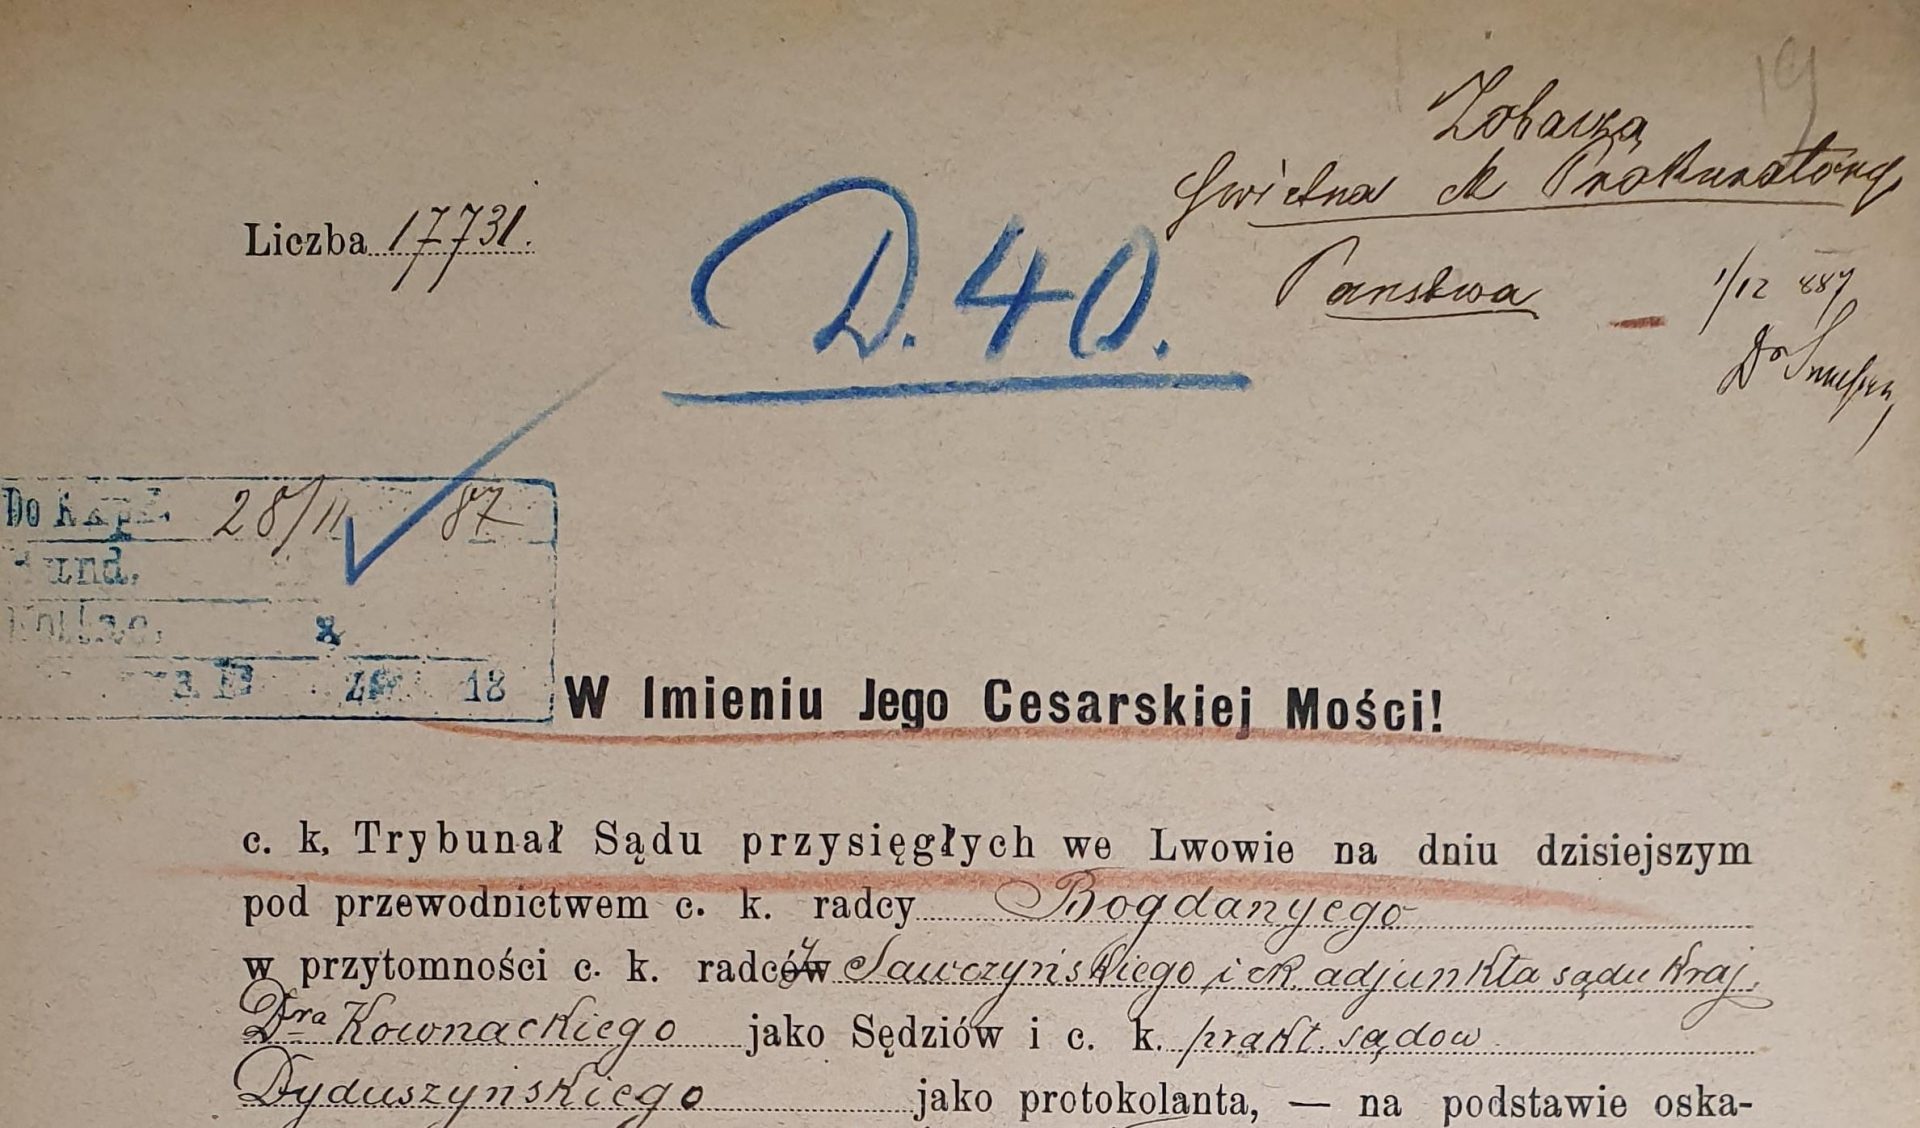 19
Zobaczą
Świetna ck Prokuratorya
Państwa
1/12 887
Dr
Liczba 17731.
D. 40.
Do Kzpd. 28/11 87
und.
x
18
W Imieniu Jego Cesarskiej Mości!
c. k, Trybunał Sądu przysięgłych we Lwowie na dniu dzisiejszym
pod przewodnictwem c. k. radcy Bogdanyego
w przytomności c. k. radcy Sawczyńskiego i ck. adjunkta sądu kraj.
Dra Kownackiego jako Sędziów i c. k. prakt. sądow
Dyduszyńskiego jako protokolanta, — na podstawie oska-